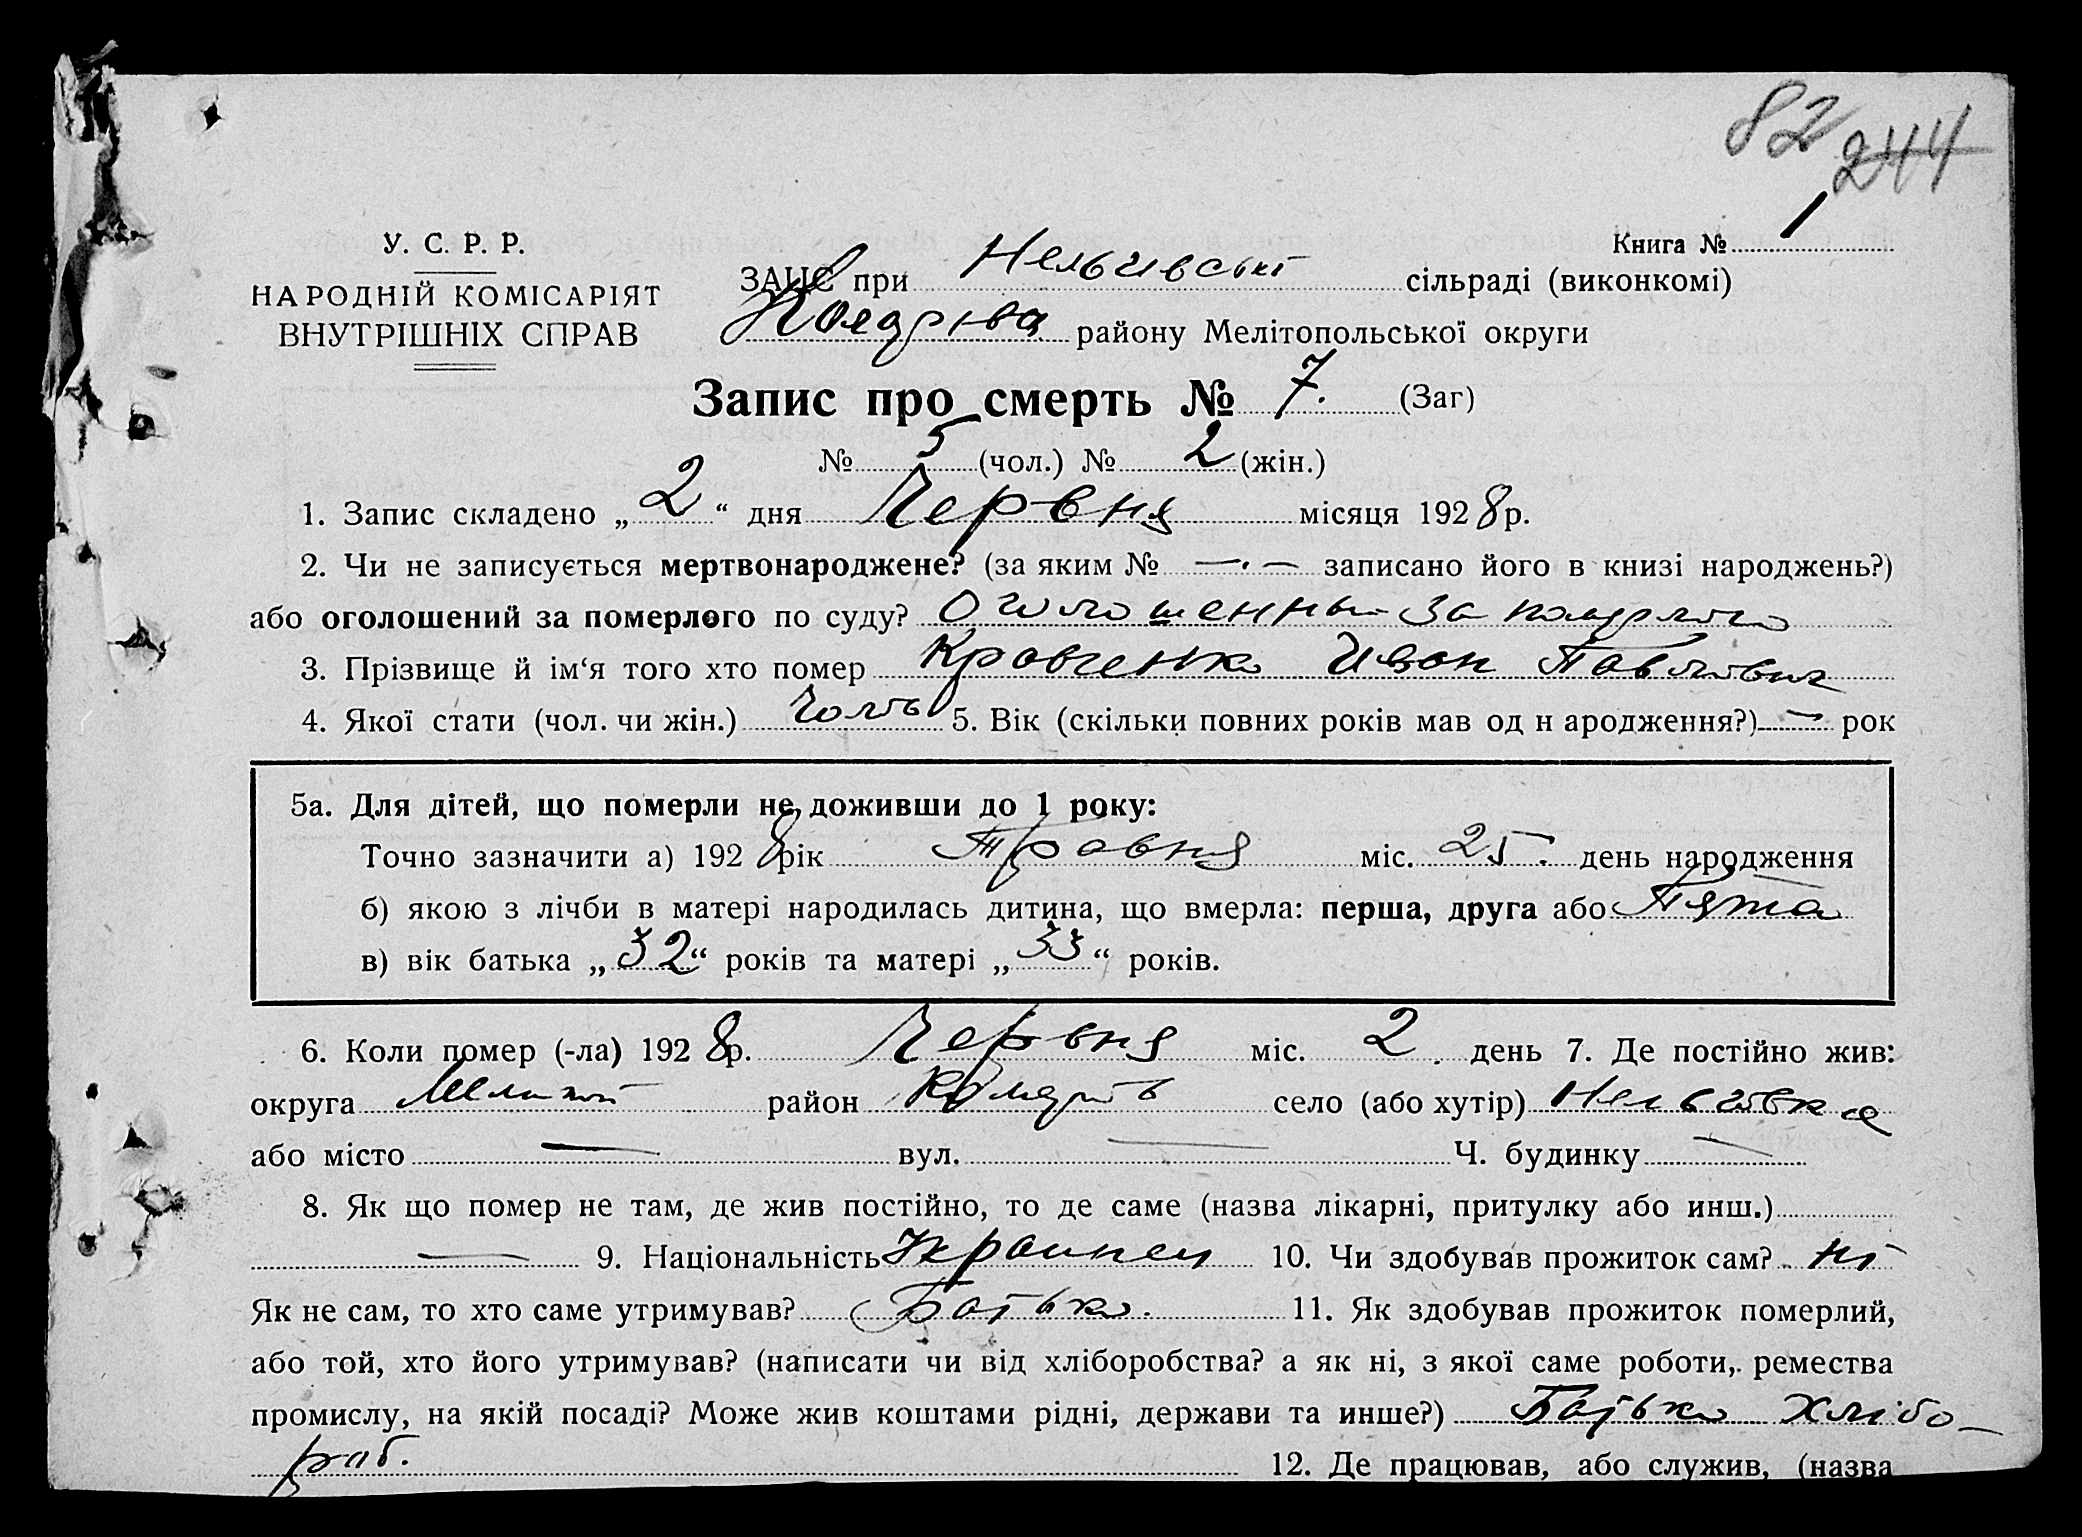 82 244
У. С. Р. Р.
Книга № 1
НАРОДНІЙ КОМІСАРІЯТ
ВНУТРІШНІХ СПРАВ
ЗАЦС при сільраді (виконкомі)
району Мелітопольської округи
Запис про смерть № 7. (Заг)
№ 5 (чол.) № 2 (жін.)
1. Запис складено „ 2 “ дня Червня місяця 1928 р.
2. Чи не записується мертвонароджене? (за яким № —·— записано його в книзі народжень?)
або оголошений за померлого по суду? Оголошенный за
3. Прізвище й ім‘я того хто помер Кравченко Иван Павлович
4. Якої стати (чол. чи жін.) 5. Вік (скільки повних років мав од н ародження?) — рок
5а. Для дітей, що померли не доживши до 1 року:
Точно зазначити а) 1928 рік Травня міс. 25. день народження
б) якою з лічби в матері народилась дитина, що вмерла: перша, друга або Пята
в) вік батька „ 32 “ років та матері „ 33 “ років.
6. Коли помер (-ла) 1928 р. Червня міс. 2. день 7. Де постійно жив:
округа район село (або хутір)
або місто — вул. — Ч. будинку —
8. Як що помер не там, де жив постійно, то де саме (назва лікарні, притулку або инш.)
— 9. Національність Украинец 10. Чи здобував прожиток сам? ні
Як не сам, то хто саме утримував? Батько. 11. Як здобував прожиток померлий,
або той, хто його утримував? (написати чи від хліборобства? а як ні, з якої саме роботи,. ремества
промислу, на якій посаді? Може жив коштами рідні, держави та инше?) Батько хлібо-
раб.
12. Де працював, або служив, (назва